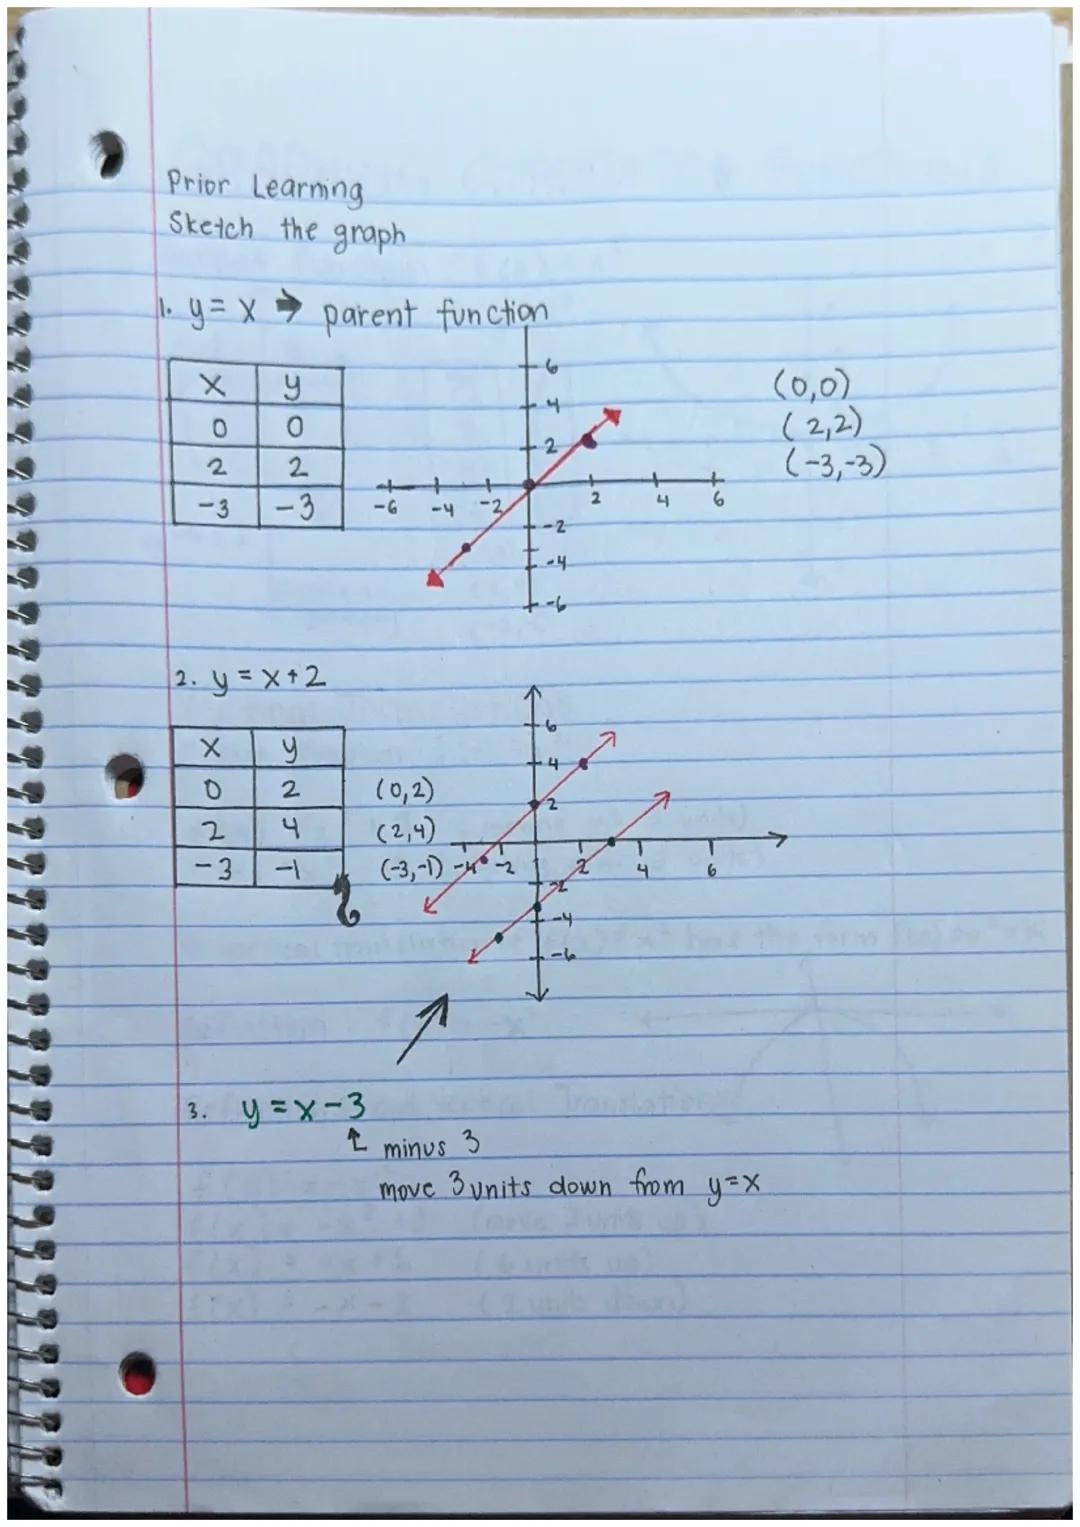 Prior Learning
Sketch the graph
1. y = x → parent function
x y
0 0
2 2
-3 -3
6
4
2
-6 -4 -2 2 4 6
-2
-4
-6
(0,0)
(2,2)
(-3,-3)
2. y = x + 2
x y
0 2
2 4
-3 -1
(0,2)
(2,4)
(-3,-1)
6
4
2
-4 -2 2 4 6
-2
-4
-6
3. y = x - 3
↑ minus 3
move 3 units down from y=x